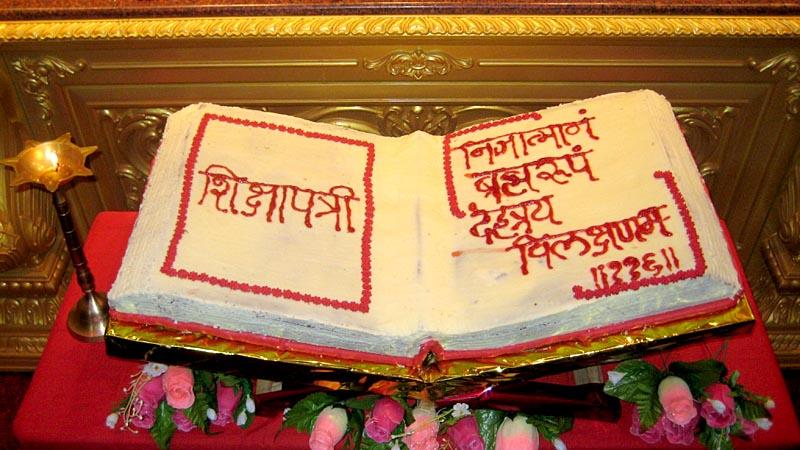 शिक्षापत्री
निजात्मानं
ब्रह्मरूपं
देहत्रय
विलक्षणम्
॥११६॥